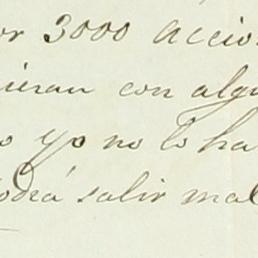 or 3000 accio
ieran con algu
o yo no lo ha
odrá salir mal